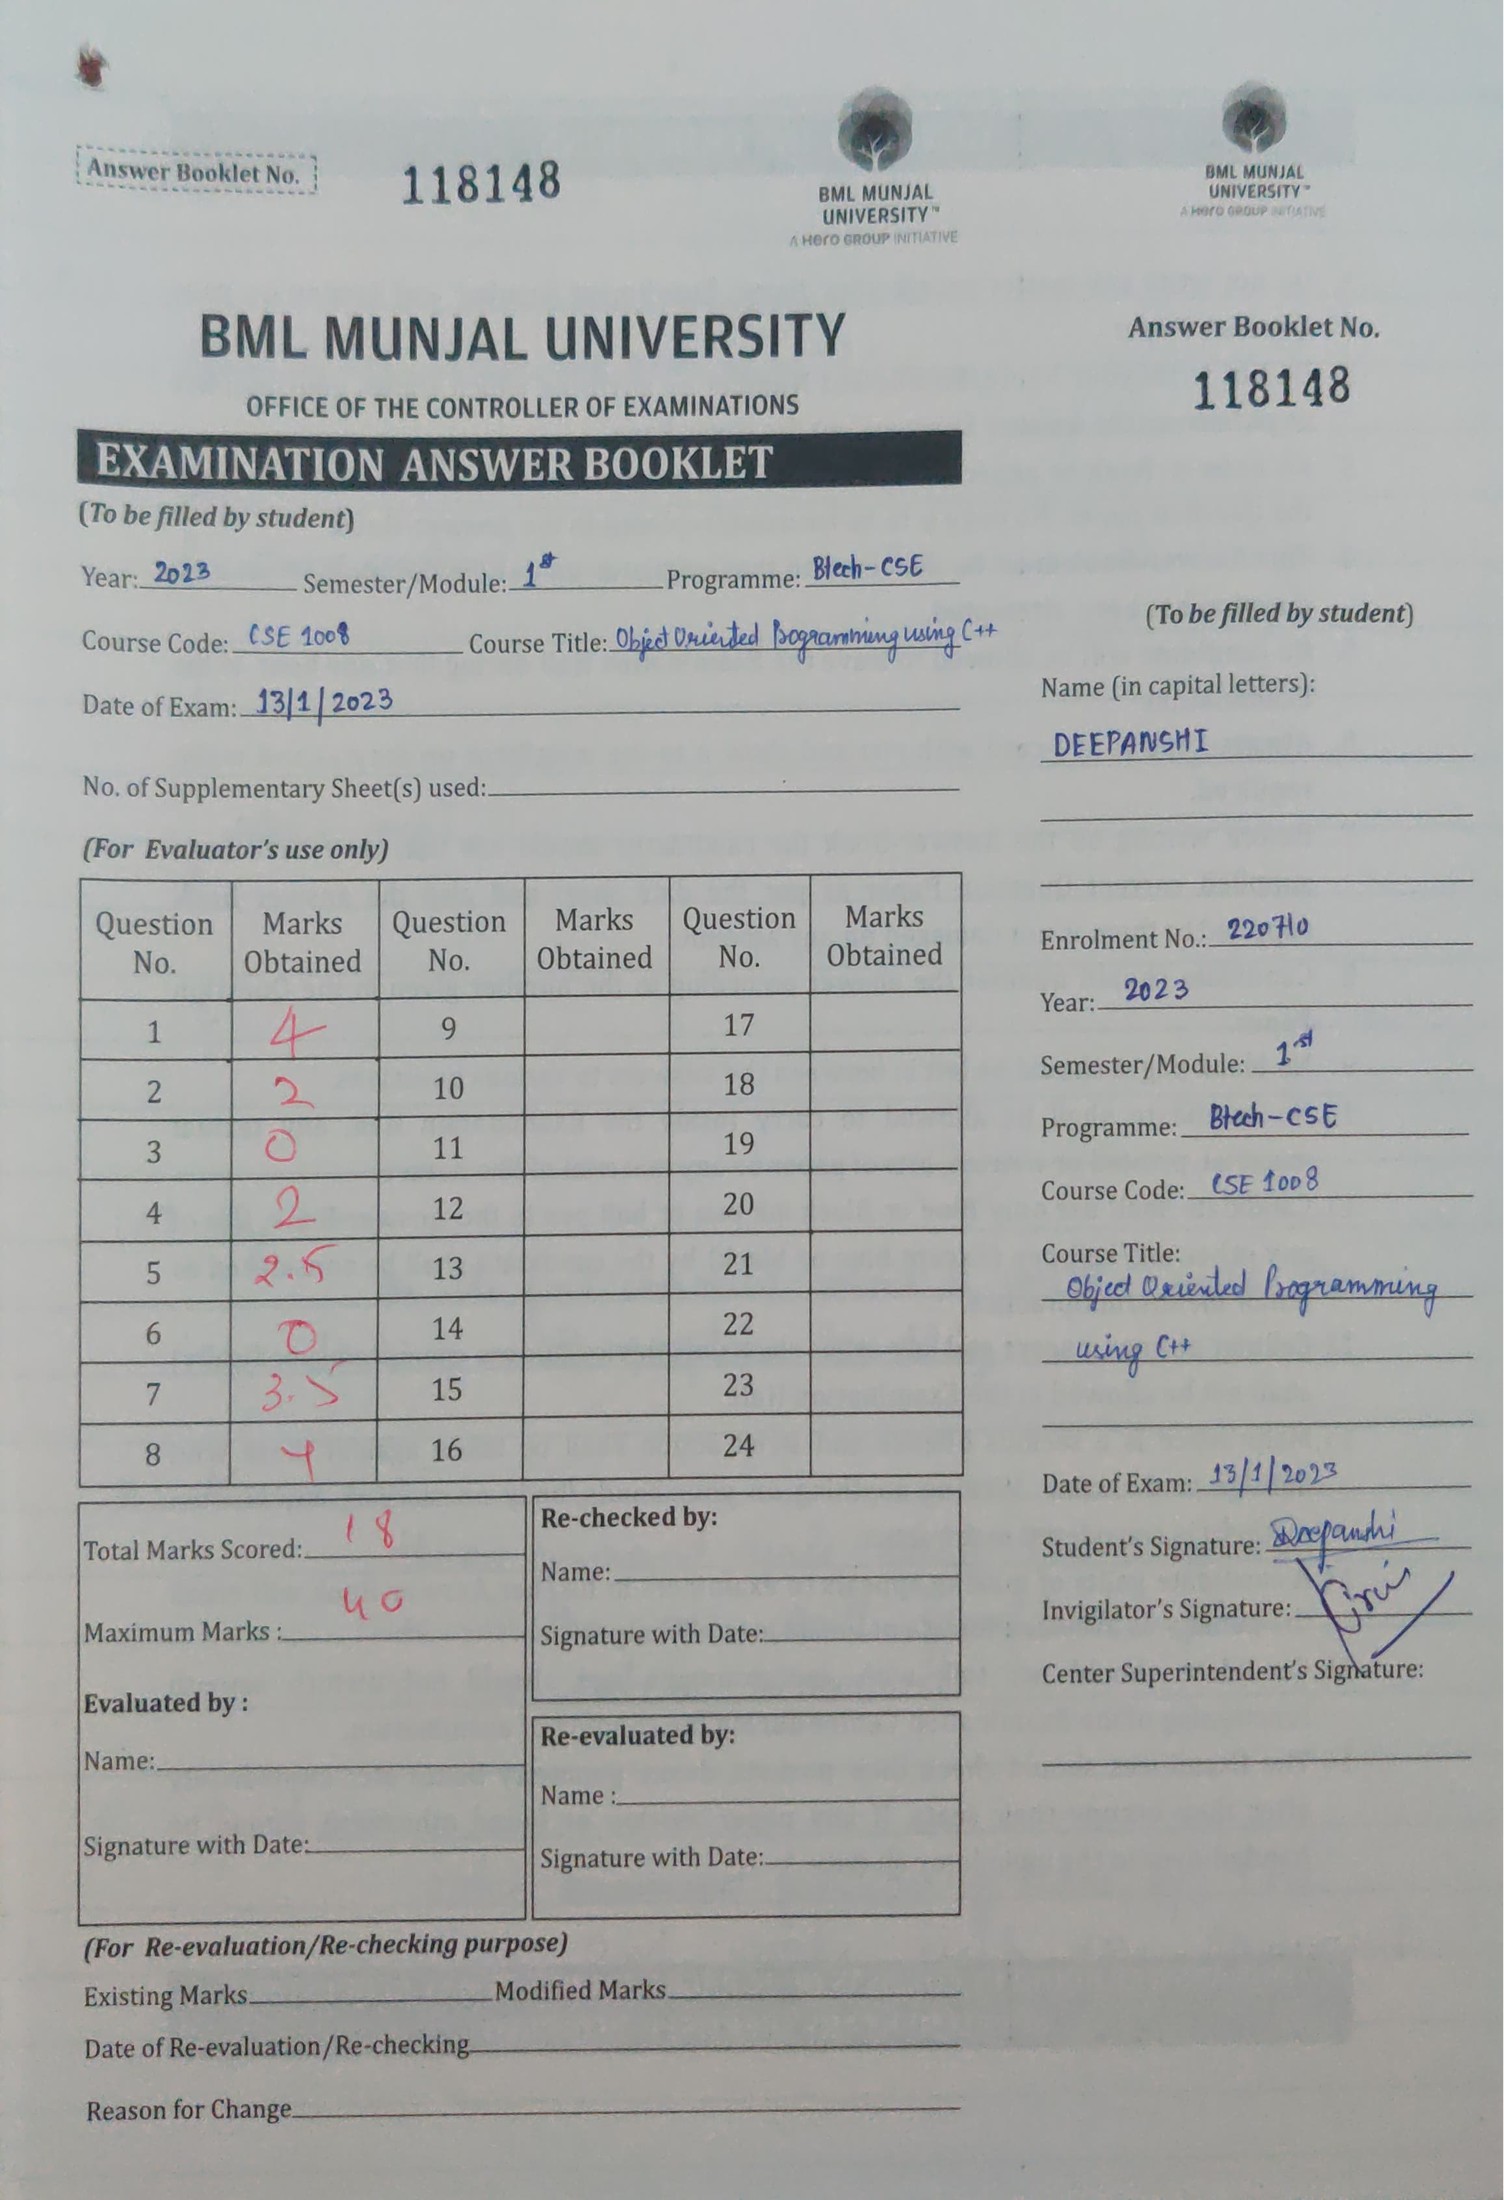 Answer Booklet No. 118148
BML MUNJAL
UNIVERSITY™
A Hero GROUP INITIATIVE
BML MUNJAL UNIVERSITY
OFFICE OF THE CONTROLLER OF EXAMINATIONS
EXAMINATION ANSWER BOOKLET
(To be filled by student)
Year: 2023 Semester/Module: 1st Programme: Btech-CSE
Course Code: CSE 1008 Course Title: Object Oriented Programming using C++
Date of Exam: 13/1/2023
No. of Supplementary Sheet(s) used:
(For Evaluator's use only)
Question No. Marks Obtained Question No. Marks Obtained Question No. Marks Obtained
1 4 9 17
2 2 10 18
3 0 11 19
4 2 12 20
5 2.5 13 21
6 0 14 22
7 3.5 15 23
8 4 16 24
Total Marks Scored: 18
Maximum Marks : 40
Evaluated by :
Name:
Signature with Date:
Re-checked by:
Name:
Signature with Date:
Re-evaluated by:
Name :
Signature with Date:
(For Re-evaluation/Re-checking purpose)
Existing Marks Modified Marks
Date of Re-evaluation/Re-checking
Reason for Change
BML MUNJAL
UNIVERSITY™
A Hero GROUP INITIATIVE
Answer Booklet No.
118148
(To be filled by student)
Name (in capital letters):
DEEPANSHI
Enrolment No.: 220710
Year: 2023
Semester/Module: 1st
Programme: Btech-CSE
Course Code: CSE 1008
Course Title:
Object Oriented Programming
using C++
Date of Exam: 13/1/2023
Student's Signature: Deepanshi
Invigilator's Signature:
Center Superintendent's Signature: